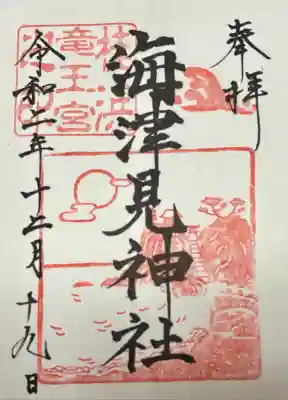 奉拝
海津見神社
桂浜
竜王宮
令和二年十二月十九日